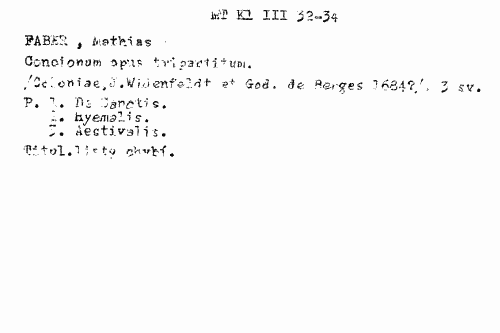 MT KL III 32-34
FABER , Mathias
Concionum opus tripartitum.
/Coloniae,J.Widenfeldt et God. de Berges 1684?/. 3 sv.
P. 1. De Sanctis.
2. Hyemalis.
3. Aestivalis.
Titul.listy chybí.